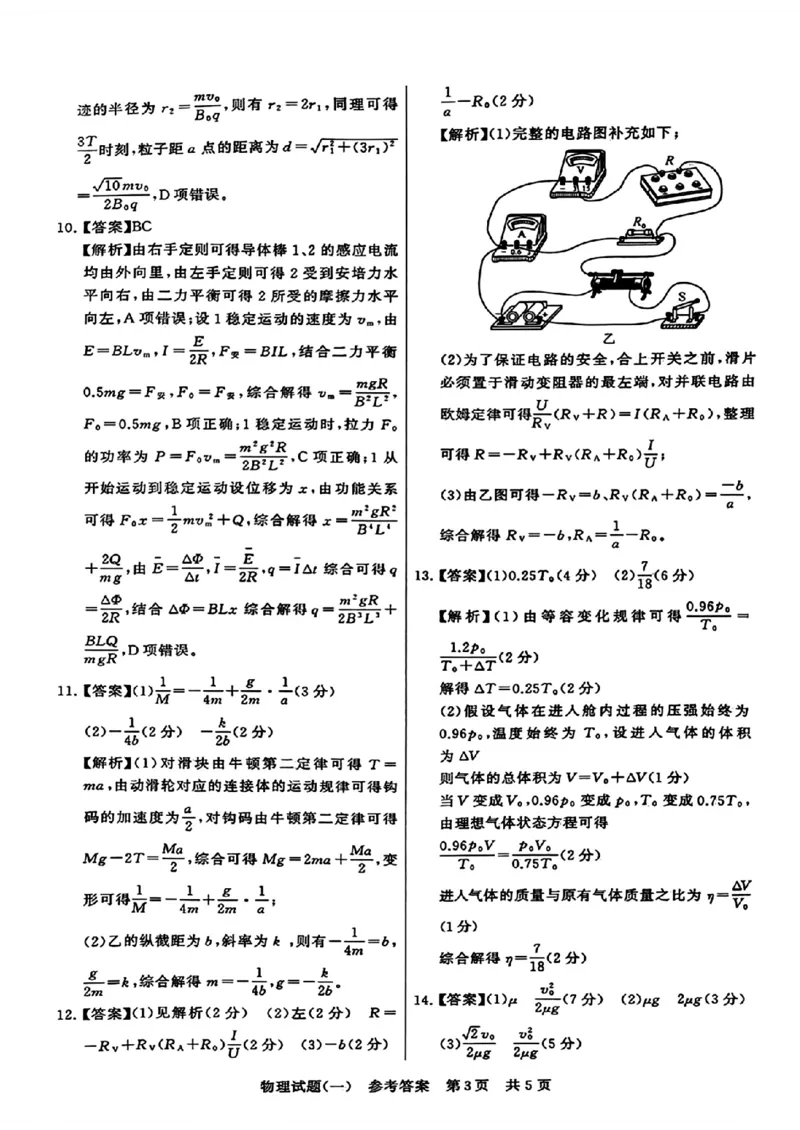 迹的半径为 r₂=mv₀/B₀q,则有 r₂=2r₁,同理可得
3T/2时刻,粒子距 a 点的距离为 d=√(r₁²+(3r₁)²)
=√10mv₀/2B₀q,D项错误。
10.【答案】BC
【解析】由右手定则可得导体棒 1、2 的感应电流
均由外向里,由左手定则可得 2 受到安培力水
平向右,由二力平衡可得 2 所受的摩擦力水平
向左,A 项错误;设 1 稳定运动的速度为 vₘ,由
E=BLvₘ,I=E/2R,F安=BIL,结合二力平衡
0.5mg=F安,F₀=F安,综合解得 vₘ=mgR/B²L²,
F₀=0.5mg,B 项正确;1 稳定运动时,拉力 F₀
的功率为 P=F₀vₘ=m²g²R/2B²L²,C 项正确;1 从
开始运动到稳定运动设位移为 x,由功能关系
可得 F₀x=1/2mvₘ²+Q,综合解得 x=m²gR²/B⁴L⁴
+2Q/mg,由 E̅=ΔΦ/Δt,I̅=E̅/2R,q=I̅Δt 综合可得 q
=ΔΦ/2R,结合 ΔΦ=BLx 综合解得 q=m²gR/2B³L³+
BLQ/mgR,D 项错误。
11.【答案】(1)1/M=-1/4m+g/2m·1/a(3 分)
(2)-1/4b(2 分) -k/2b(2 分)
【解析】(1)对滑块由牛顿第二定律可得 T=
ma,由动滑轮对应的连接体的运动规律可得钩
码的加速度为a/2,对钩码由牛顿第二定律可得
Mg-2T=Ma/2,综合可得 Mg=2ma+Ma/2,变
形可得1/M=-1/4m+g/2m·1/a;
(2)乙的纵截距为 b,斜率为 k ,则有-1/4m=b,
g/2m=k,综合解得 m=-1/4b,g=-k/2b。
12.【答案】(1)见解析(2 分) (2)左(2 分) R=
-Rv+Rv(RA+R₀)I/U(2 分) (3)-b(2 分)
1/a-R₀(2 分)
【解析】(1)完整的电路图补充如下;
V
R
A
R₀
S
乙
(2)为了保证电路的安全,合上开关之前,滑片
必须置于滑动变阻器的最左端,对并联电路由
欧姆定律可得U/Rv(Rv+R)=I(RA+R₀),整理
可得 R=-Rv+Rv(RA+R₀)I/U;
(3)由乙图可得-Rv=b、Rv(RA+R₀)=-b/a,
综合解得 Rv=-b,RA=1/a-R₀。
13.【答案】(1)0.25T₀(4 分) (2)7/18(6 分)
【解析】(1)由等容变化规律可得 0.96p₀/T₀=
1.2p₀/T₀+ΔT(2 分)
解得 ΔT=0.25T₀(2 分)
(2)假设气体在进入舱内过程的压强始终为
0.96p₀,温度始终为 T₀,设进入气体的体积
为 ΔV
则气体的总体积为 V=V₀+ΔV(1 分)
当 V 变成 V₀,0.96p₀ 变成 p₀,T₀ 变成 0.75T₀,
由理想气体状态方程可得
0.96p₀V/T₀=p₀V₀/0.75T₀(2 分)
进入气体的质量与原有气体质量之比为 η=ΔV/V₀
(1 分)
综合解得 η=7/18(2 分)
14.【答案】(1)μ v₀²/2μg(7 分) (2)μg 2μg(3 分)
(3)√2v₀/2μg v₀²/2μg(5 分)
物理试题(一) 参考答案 第 3 页 共 5 页